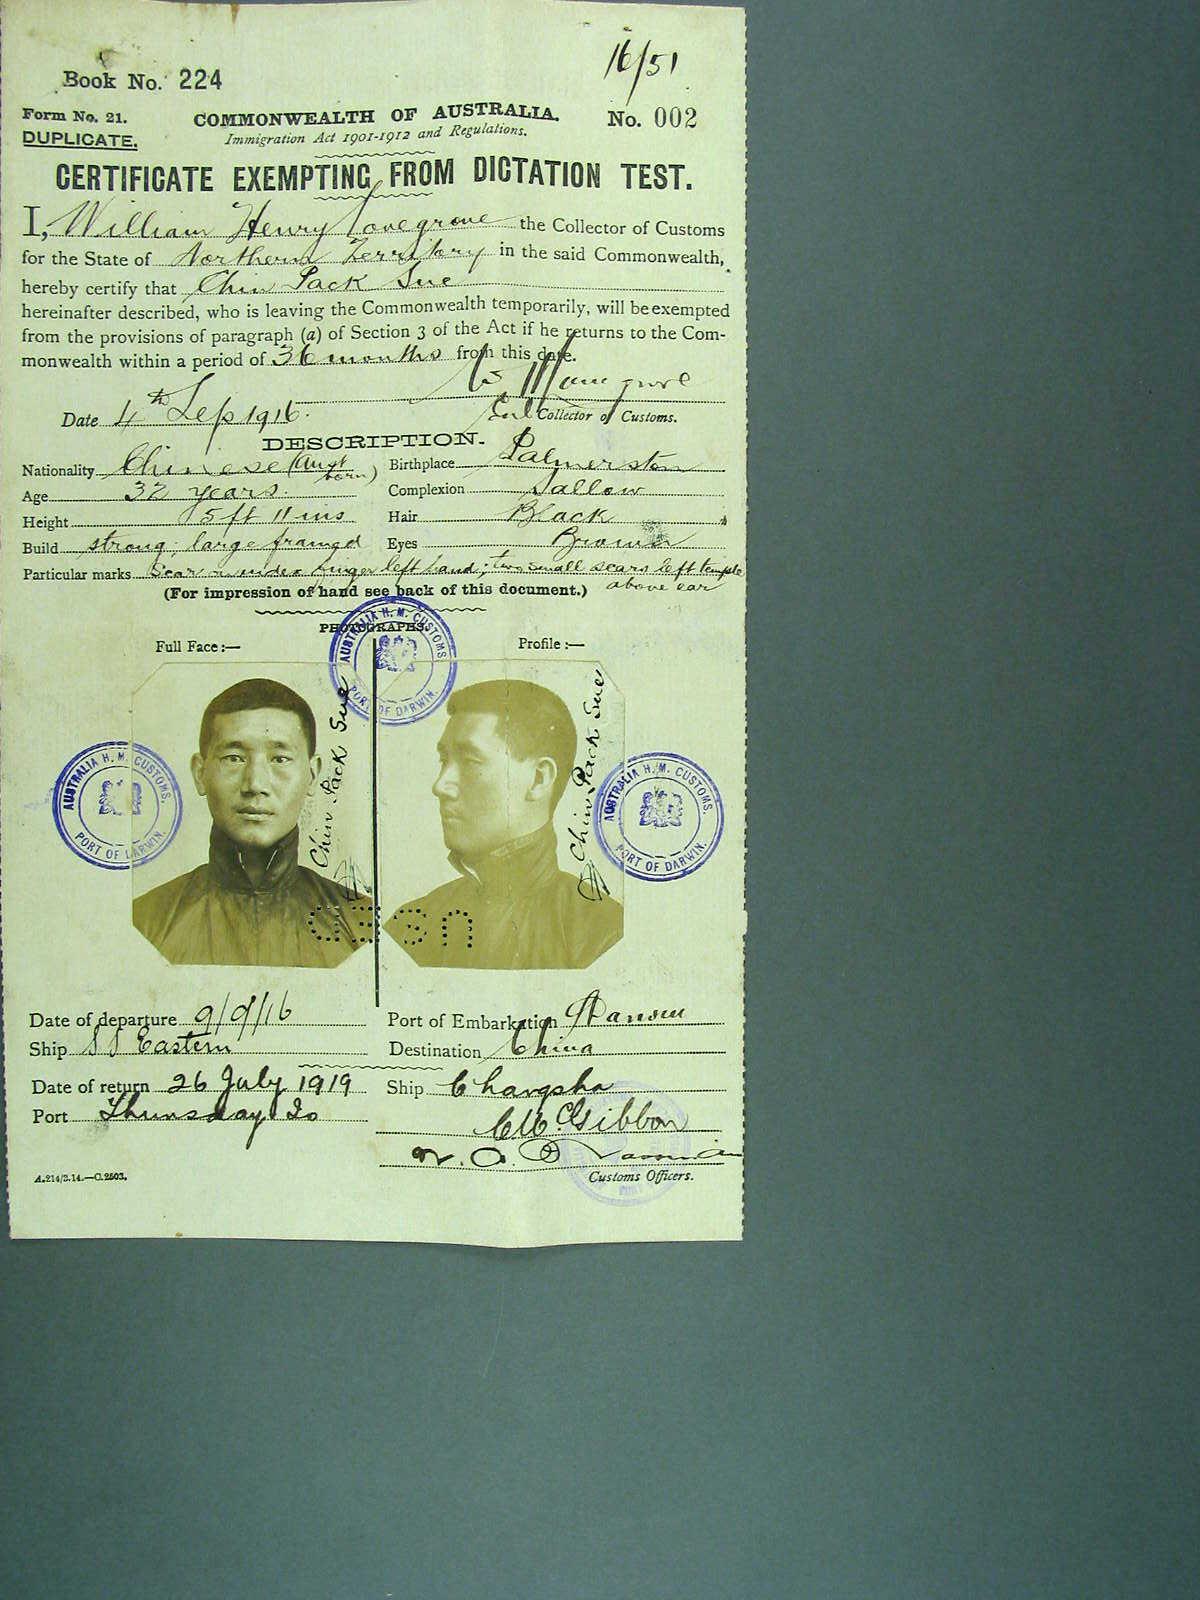 16/51
Book No. 224
Form No. 21.
COMMONWEALTH OF AUSTRALIA.
No. 002
DUPLICATE.
Immigration Act 1901-1912 and Regulations.
CERTIFICATE EXEMPTING FROM DICTATION TEST.
I, William Henry Lovegrove the Collector of Customs
for the State of Northern Territory in the said Commonwealth,
hereby certify that Chin Pack Sue
hereinafter described, who is leaving the Commonwealth temporarily, will be exempted
from the provisions of paragraph (a) of Section 3 of the Act if he returns to the Com-
monwealth within a period of 36 months from this date.
Date 4th Sep 1916.
Collector of Customs.
DESCRIPTION.
Nationality Chinese (Aust born)
Birthplace Palmerston
Age 32 years.
Complexion Sallow
Height 5 ft 11 ins
Hair Black
Build strong; large framed
Eyes Brown
Particular marks Scar index finger left hand; two small scars left temple
above ear
(For impression of hand see back of this document.)
PHOTOGRAPHS.
Full Face :—
Profile :—
AUSTRALIA H. M. CUSTOMS.
PORT OF DARWIN.
Chin Pack Sue
Chin Pack Sue
AUSTRALIA H. M. CUSTOMS.
PORT OF DARWIN.
AUSTRALIA H. M. CUSTOMS.
PORT OF DARWIN.
Date of departure 9/9/16
Port of Embarkation Darwin
Ship SS Eastern
Destination China
Date of return 26 July 1919
Ship Changsha
Port Thursday Is
McGibbon
Customs Officers.
A.214/3.14.—C.2503.